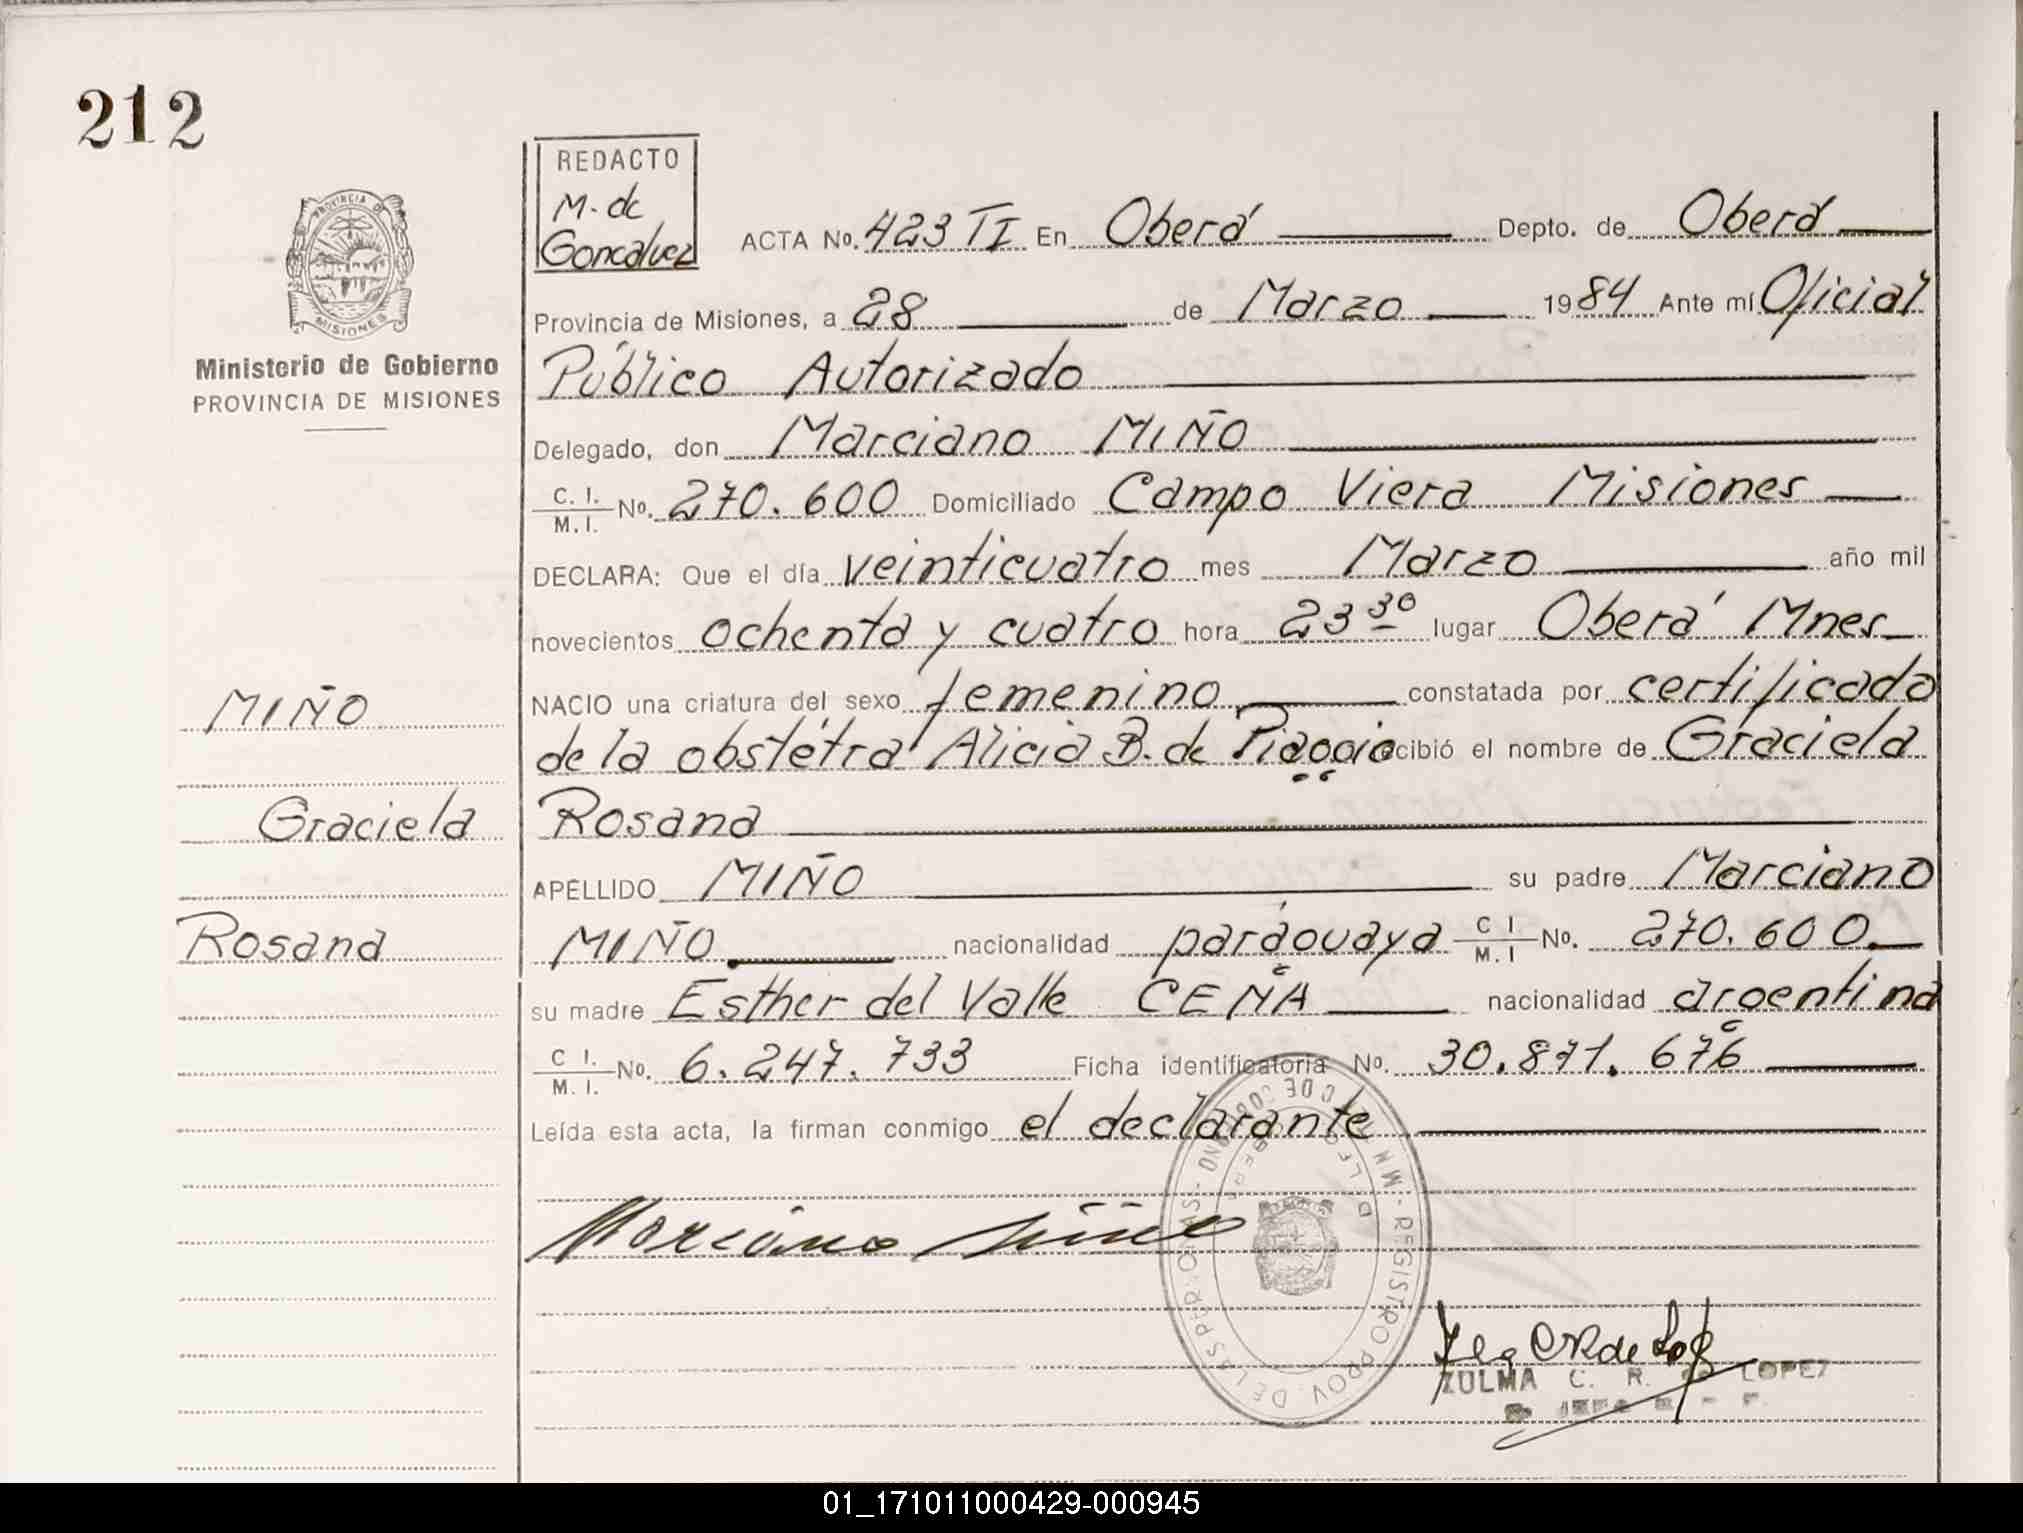 212
REDACTO
M. de
Goncalvez
ACTA No. 423 TI En Oberá Depto. de Oberá
Provincia de Misiones, a 28 de Marzo 1984 Ante mí Oficial
Público Autorizado
PROVINCIA DE
MISIONES
Ministerio de Gobierno
PROVINCIA DE MISIONES
Delegado, don Marciano MIÑO
C. I.
M. I. No. 270.600 Domiciliado Campo Viera Misiones
DECLARA: Que el día veinticuatro mes Marzo año mil
novecientos ochenta y cuatro hora 23 30 lugar Oberá Mnes
MIÑO
NACIO una criatura del sexo femenino constatada por certificado
de la obstétra Alicia B. de Piaggio cibió el nombre de Graciela
Graciela
Rosana
APELLIDO MIÑO su padre Marciano
Rosana
MIÑO nacionalidad paraguaya C I
M. I No. 270.600
su madre Esther del Valle CEÑA nacionalidad argentina
C I.
M. I. No. 6.247.733 Ficha identificatoria No. 30.871.676
Leída esta acta, la firman conmigo el declarante
Marciano Miño
REGISTRO PROV. DE LAS PERSONAS
ZULMA C. R. de LOPEZ
01_171011000429-000945